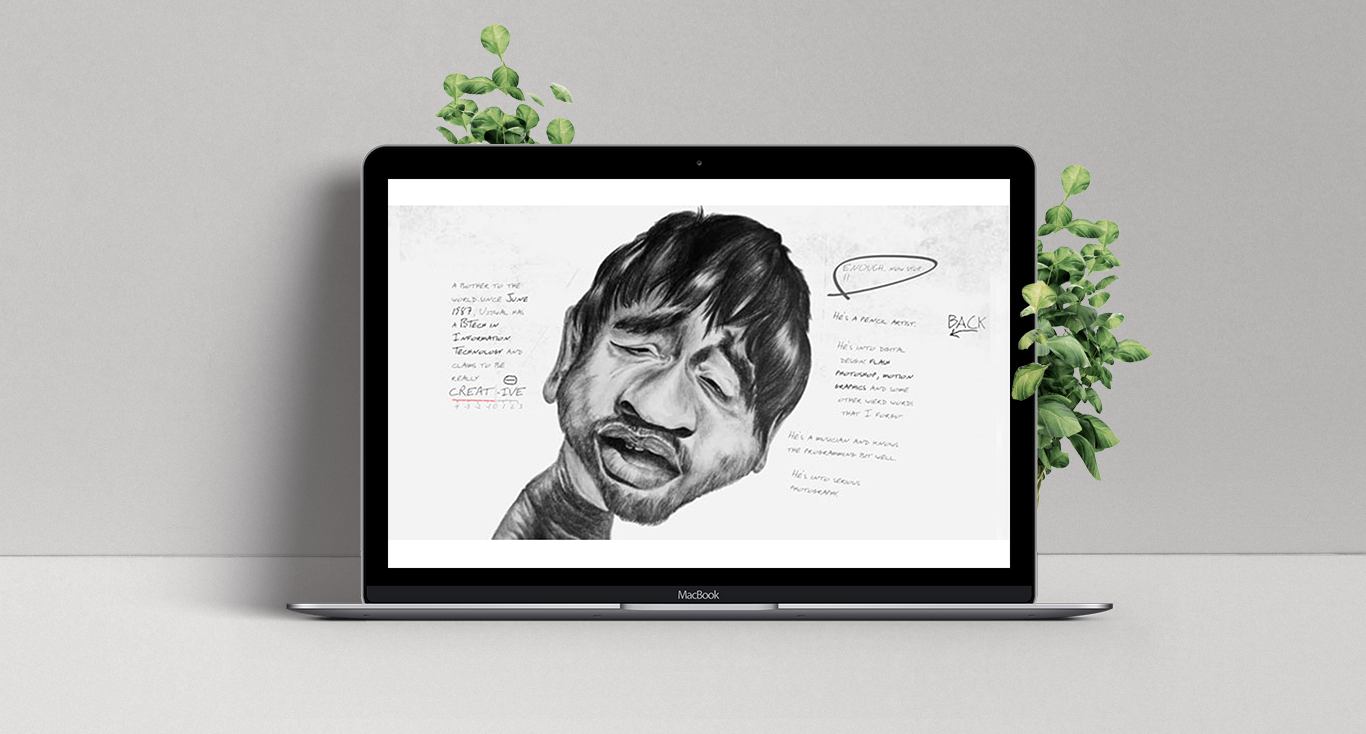 A BOTHER TO THE
WORLD SINCE JUNE
1987, UJJWAL HAS
A BTECH IN
INFORMATION
TECHNOLOGY AND
CLAIMS TO BE
REALLY
CREAT-IVE
ENOUGH. NOW STOP
!!
HE'S A PENCIL ARTIST.
BACK
HE'S INTO DIGITAL
DESIGN FLASH
PHOTOSHOP, MOTION
GRAPHICS AND SOME
OTHER WEIRD WORDS
THAT I FORGOT
HE'S A MUSICIAN AND KNOWS
THE PROGRAMMING BIT WELL.
HE'S INTO SERIOUS
PHOTOGRAPHY.
MacBook